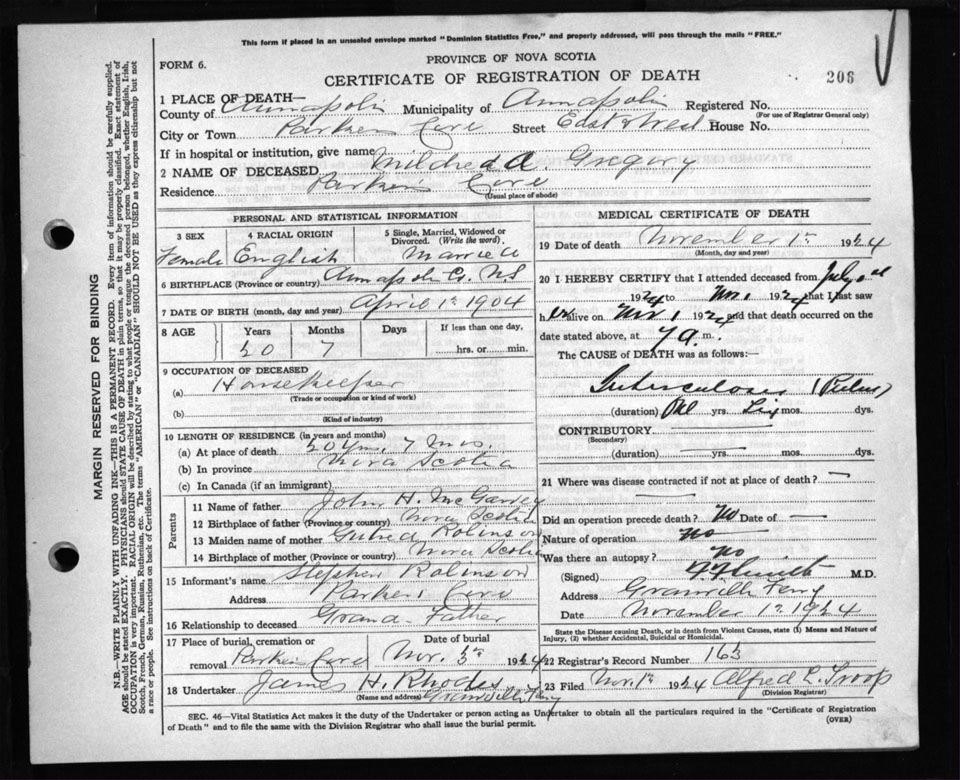 This form if placed in an unsealed envelope marked "Dominion Statistics Free," and properly addressed, will pass through the mails "FREE."
FORM 6.
PROVINCE OF NOVA SCOTIA
CERTIFICATE OF REGISTRATION OF DEATH
206
1 PLACE OF DEATH—
County of Annapolis Municipality of Annapolis Registered No.
(For use of Registrar General only)
City or Town Parkers Cove Street East & West House No.
If in hospital or institution, give name
2 NAME OF DECEASED Mildred A Gregory
Residence Parkers Cove
(Usual place of abode)
PERSONAL AND STATISTICAL INFORMATION
3 SEX 4 RACIAL ORIGIN 5 Single, Married, Widowed or Divorced. (Write the word),
Female English Married
6 BIRTHPLACE (Province or country) Annapolis Co. N.S.
7 DATE OF BIRTH (month, day and year) April 1st 1904
8 AGE Years Months Days If less than one day,
20 7 hrs. or min.
9 OCCUPATION OF DECEASED
(a) Housekeeper
(Trade or occupation or kind of work)
(b)
(Kind of industry)
10 LENGTH OF RESIDENCE (in years and months)
(a) At place of death 20 yrs. 7 Mos.
(b) In province Nova Scotia
(c) In Canada (if an immigrant)
Parents
11 Name of father John H. McGarvey
12 Birthplace of father (Province or country) Nova Scotia
13 Maiden name of mother Robinson
14 Birthplace of mother (Province or country) Nova Scotia
15 Informant's name Stephen Robinson
Address Parkers Cove
16 Relationship to deceased Grand-Father
17 Place of burial, cremation or removal Parkers Cove Date of burial Nov. 1924
18 Undertaker James H. Rhodes
(Name and address) Granville Ferry
MEDICAL CERTIFICATE OF DEATH
19 Date of death November 1st 1924
(Month, day and year)
20 I HEREBY CERTIFY that I attended deceased from July
1924 to Nov. 1 1924 that I last saw
her alive on Nov 1 1924 and that death occurred on the
date stated above, at 7 a. m.
The CAUSE of DEATH was as follows:—
Tuberculosis
(duration) yrs. Six mos. dys.
CONTRIBUTORY
(Secondary)
(duration) yrs. mos. dys.
21 Where was disease contracted if not at place of death? —
Did an operation precede death? No Date of —
Nature of operation no
Was there an autopsy? no
(Signed) M.D.
Address Granville Ferry
Date November 1st 1924
State the Disease causing Death, or in death from Violent Causes, state (1) Means and Nature of Injury, (2) whether Accidental, Suicidal or Homicidal.
22 Registrar's Record Number 163
23 Filed Nov. 1st 1924 Alfred L. Troop
(Division Registrar)
SEC. 46—Vital Statistics Act makes it the duty of the Undertaker or person acting as Undertaker to obtain all the particulars required in the "Certificate of Registration
of Death" and to file the same with the Division Registrar who shall issue the burial permit.
(OVER)
MARGIN RESERVED FOR BINDING
N.B.—WRITE PLAINLY WITH UNFADING INK—THIS IS A PERMANENT RECORD. Every item of information should be carefully supplied.
AGE should be stated EXACTLY. PHYSICIANS should STATE CAUSE OF DEATH in plain terms, so that it may be properly classified. Exact statement of
OCCUPATION is very important. RACIAL ORIGIN will be described by stating to what people or tongue the deceased person belonged, whether English, Irish,
Scotch, French, German, Russian, Ruthenian, etc. The terms "AMERICAN" or "CANADIAN" SHOULD NOT BE USED as they express citizenship but not
a race or people. See instructions on back of Certificate.